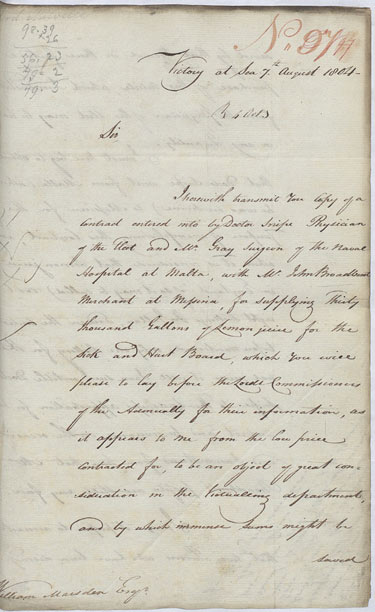 98..39
26
No. 374
Victory at Sea 7th August 1804-
R 4 Octr
Sir
I herewith transmit You Copy of a
Contract entered into by Doctor Snipe Physician
of the Fleet and Mr. Gray Surgeon of the Naval
Hospital at Malta, with Mr. John Broadbent
Merchant at Messina for supplying Thirty
thousand Gallons of Lemon juice for the
Sick and Hurt Board, which You will
please to lay before the Lords Commissioners
of the Admiralty for their information, as
it appears to me from the low price
contracted for, to be an object of great con-
sideration in the Victualling department,
and by which immense Sums might be
saved
William Marsden Esqr.